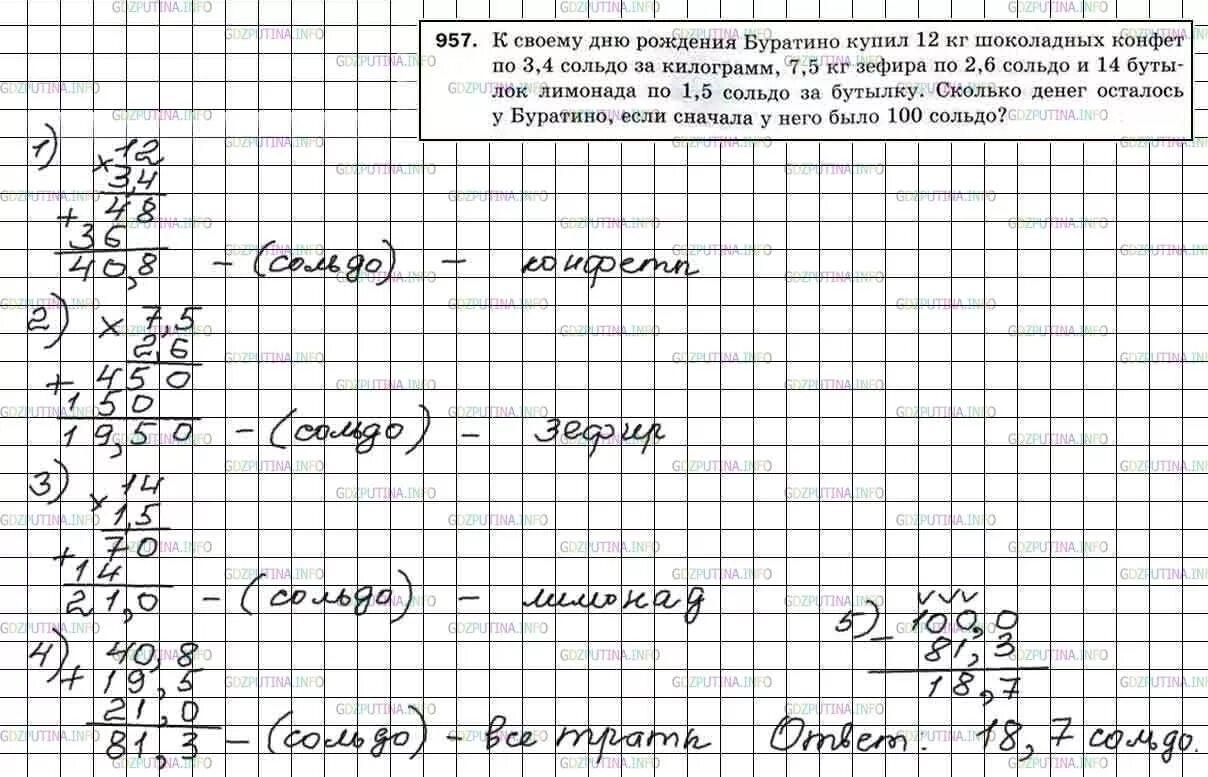 957. К своему дню рождения Буратино купил 12 кг шоколадных конфет
по 3,4 сольдо за килограмм, 7,5 кг зефира по 2,6 сольдо и 14 буты-
лок лимонада по 1,5 сольдо за бутылку. Сколько денег осталось
у Буратино, если сначала у него было 100 сольдо?
1) × 12
3,4
+ 48
36
40,8 - (сольдо) - конфеты
2) × 7,5
2,6
+ 450
150
19,50 - (сольдо) - зефир
3) × 14
1,5
+ 70
14
21,0 - (сольдо) - лимонад
4) + 40,8
19,5
21,0
81,3 - (сольдо) - все траты
5) - 100,0
81,3
18,7
Ответ: 18,7 сольдо.
GDZPUTINA.INFO